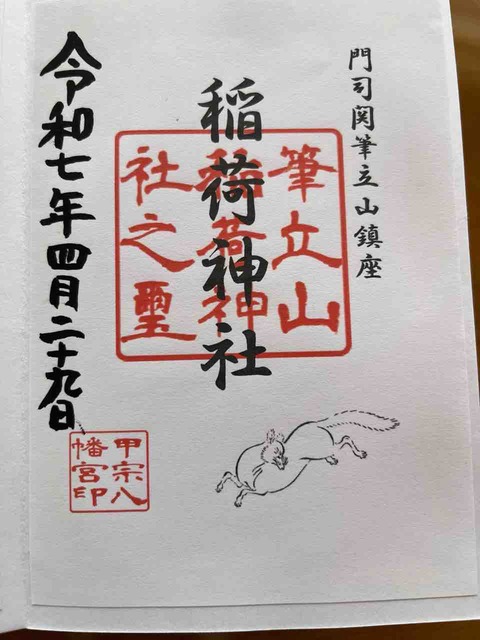 門司関筆立山鎮座
稲荷神社
筆立山
稲荷神
社之璽
令和七年四月二十九日
甲宗八
幡宮印